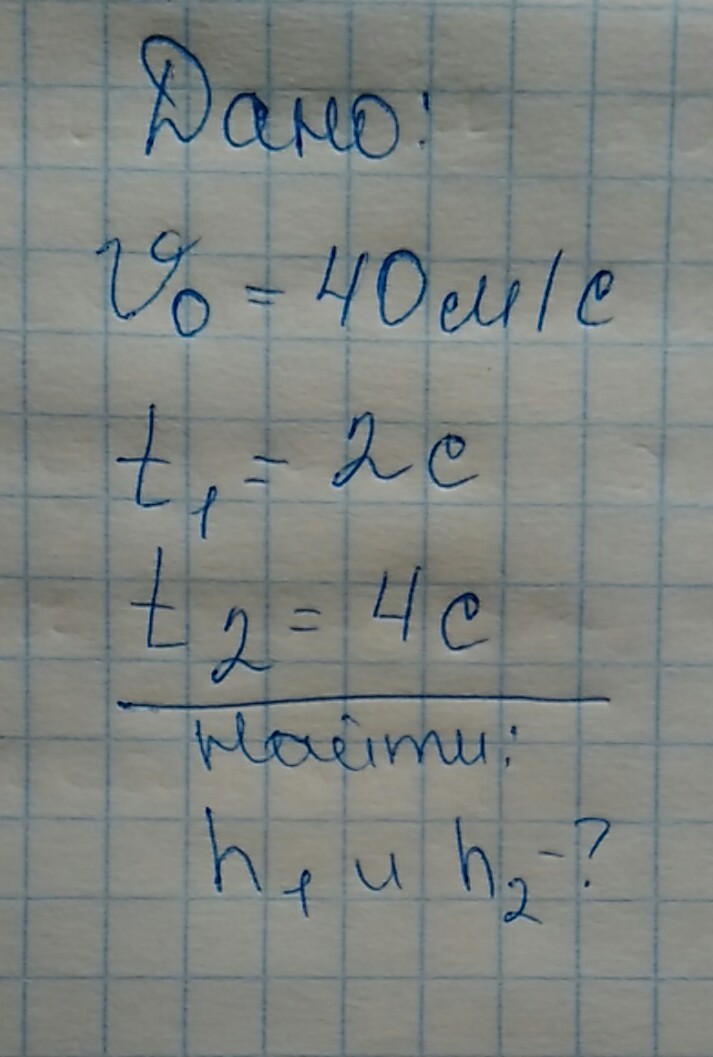 Дано:
v₀ = 40 м/с
t₁ = 2 с
t₂ = 4 с
Найти:
h₁ и h₂ -?